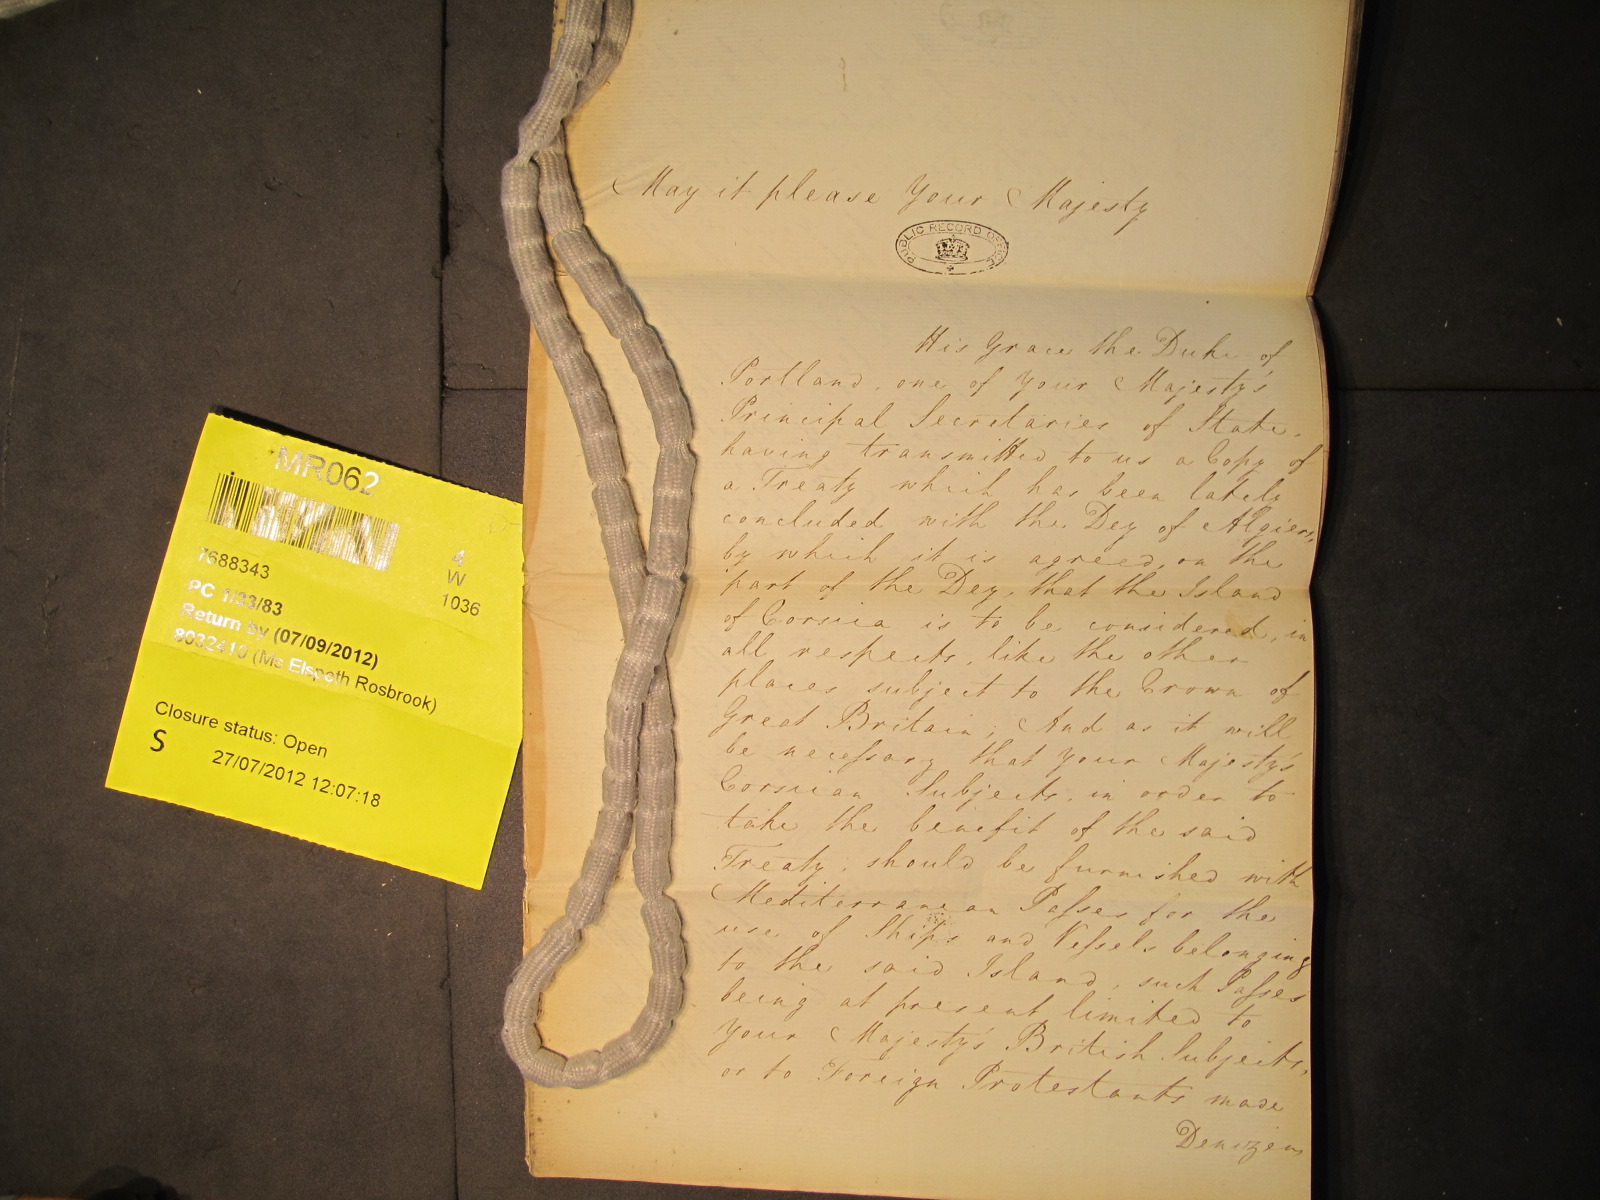 May it please Your Majesty
PUBLIC RECORD OFFICE
His Grace the Duke of
Portland, one of Your Majesty's
Principal Secretaries of State,
having transmitted to us a Copy of
a Treaty which has been lately
concluded with the Dey of Algiers,
by which it is agreed, on the
part of the Dey, that the Island
of Corsica is to be considered, in
all respects, like the other
places subject to the Crown of
Great Britain; And as it will
be necessary that Your Majesty's
Corsican Subjects, in order to
take the benefit of the said
Treaty, should be furnished with
Mediterranean Passes for the
use of Ships and Vessels belonging
to the said Island, such Passes
being at present limited to
Your Majesty's British Subjects,
or to Foreign Protestants made
Denizens
MR062
7688343
4
W
1036
PC 1/23/83
Return by (07/09/2012)
8032410 (Ms Elspeth Rosbrook)
Closure status: Open
S
27/07/2012 12:07:18